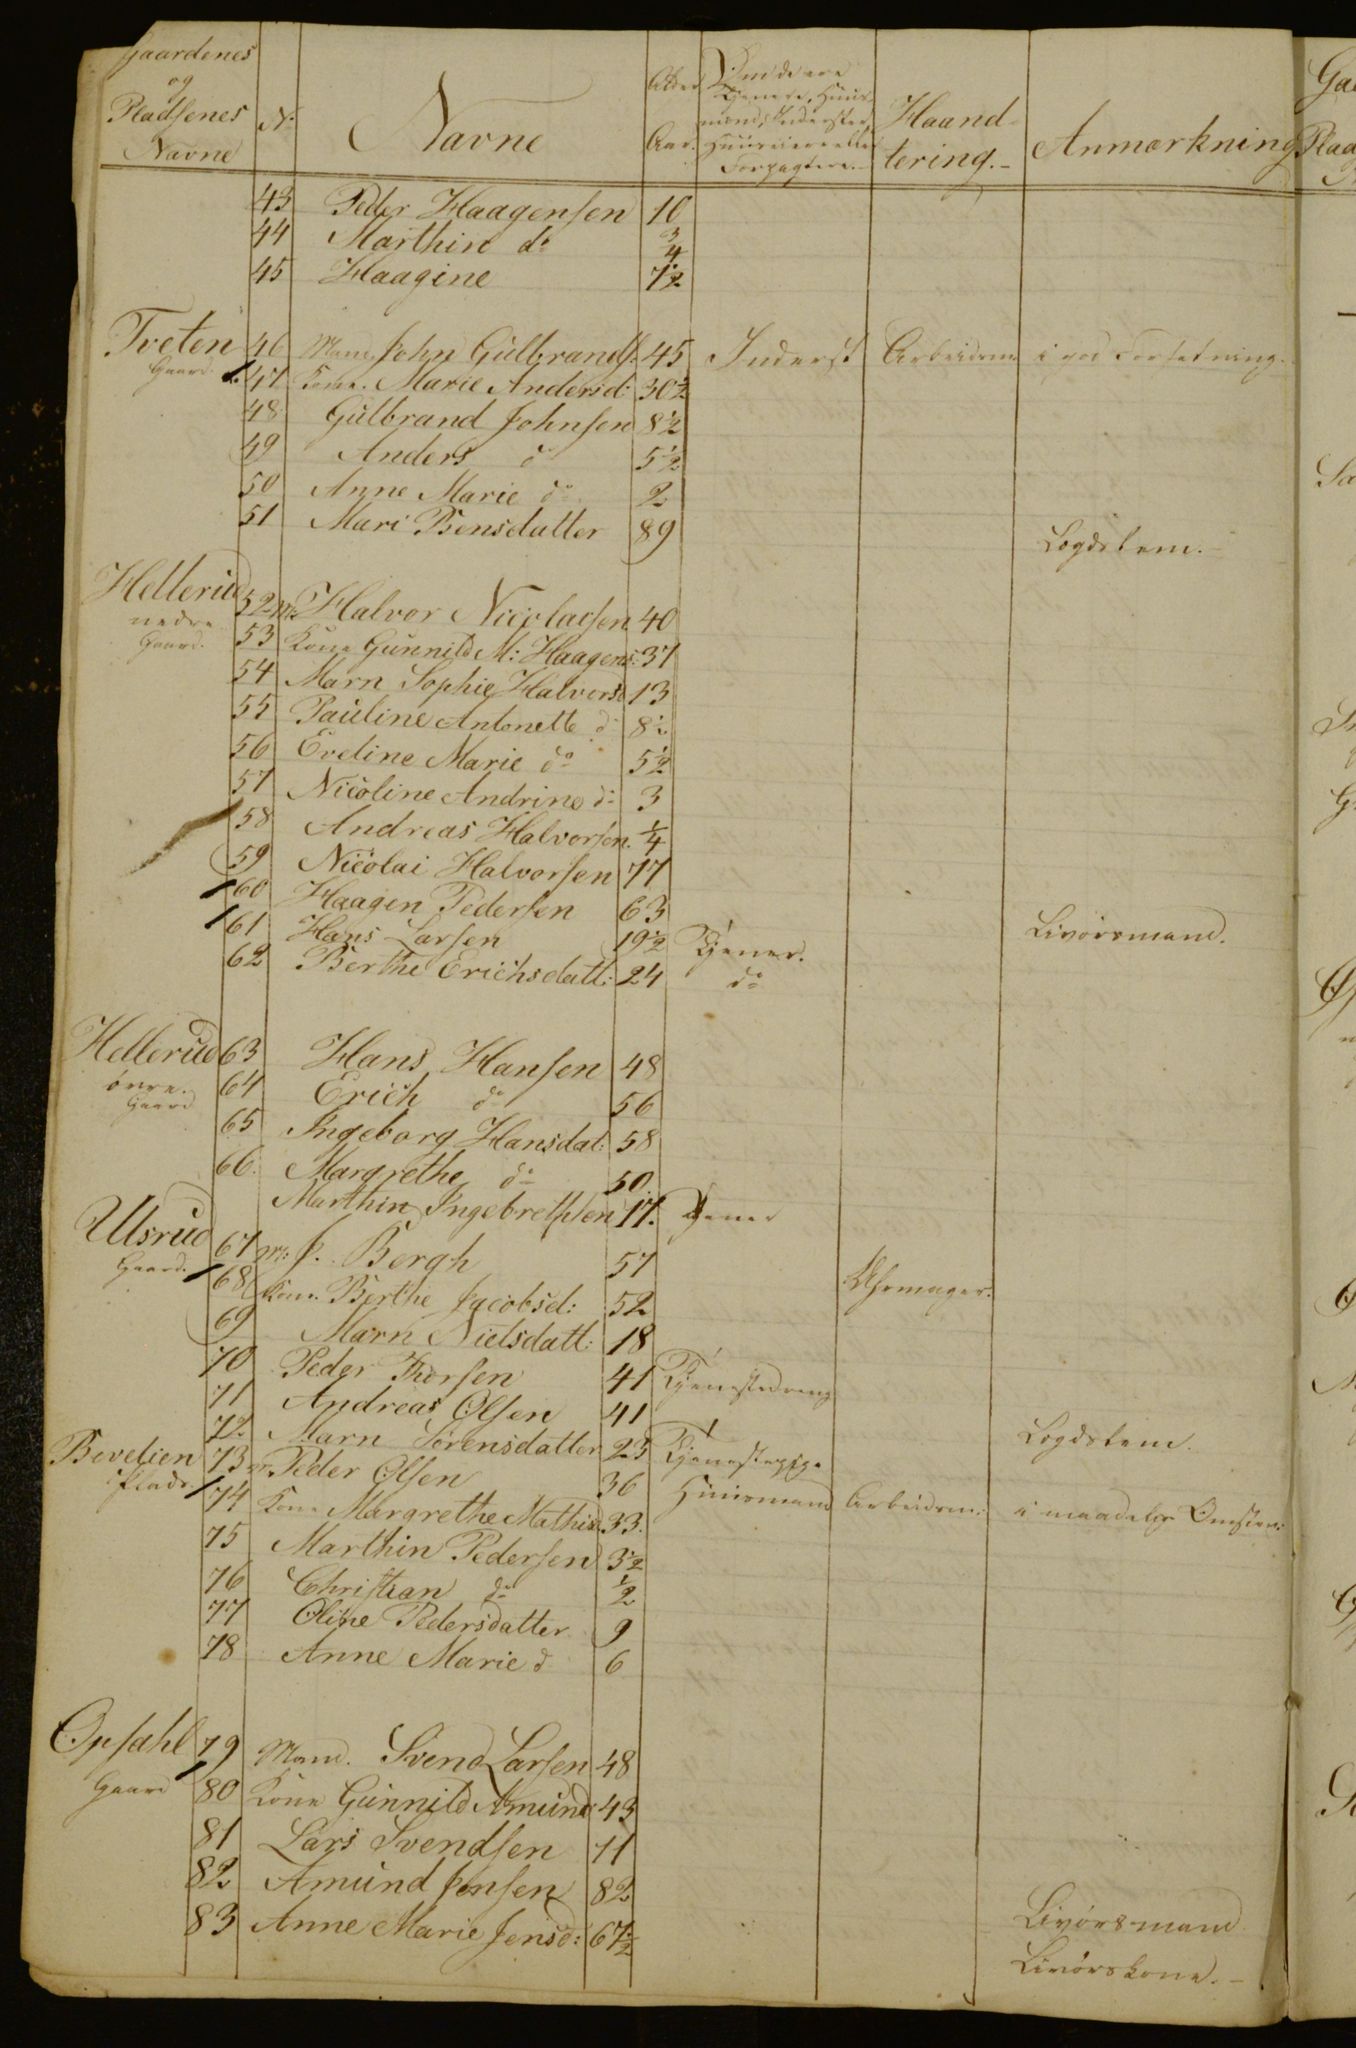 Gaardenes og Pladsenes Navne | No | Navne | Alder Aar. | Om de ere Tjenere, Huusmænd, Inderster, Huuseiere eller Forpagtere.- | Haandtering.- | Anmærkning
43 Peder Haagensen 10
44 Marthin do 3/4
45 Haagine 7 1/2
Tveten 46 Mand John Gulbrands: 45 Inderst Arbeidsm i god Forfatning.
Gaard. 47 Kone. Marie Andersd: 30 1/2
48 Gulbrand Johnsen 8 1/2
49 Anders do 5 1/2
50 Anne Marie do 2
51 Mari Bensdatter 89 Logdslem.-
Hellerud 52 M: Halvor Nicolaisen 40
nedre 53 Kone Gunnild M: Haagens: 37
Gaard.
54 Marn Sophie Halvorsd 13
55 Pauline Antonette do 8 1/2
56 Eveline Marie do 5 1/2
57 Nicoline Andrine do 3
58 Andreas Halvorsen. 1/4
59 Nicolai Halvorsen 77
60 Haagen Pedersen 63 Livørsmand.
61 Hans Larsen 19 1/2 Tjener.
62 Berthe Erichsdatt: 24 do
Hellerud 63 Hans Hansen 48
øvre. 64 Erich do 56
Gaard
65 Ingeborg Hansdat: 58
66. Margrethe do 50.
Marthin Ingebretsen 17. Tjener
Ulsrud 67 M: J. Bergh 57 Uhrmager.
Gaard. 68 Kone. Berthe Jacobsd: 52
69 Marn Nielsdatt: 18
70 Peder Thorsen 41 Tjenestedreng
71 Andreas Olsen 41 Logdslem.
72 Marn Sørensdatter 23 Tjenestepige
Bevelien 73 M Peder Olsen 36 Huusmand Arbeidsm: i maadelige Omstæn:
Plads. 74 Kone Margrethe Mathisd 33.
75 Marthin Pedersen 3 1/2
76 Christian do 1/2
77 Oline Pedersdatter 9
78 Anne Marie do 6
Opsahl 79 Mand. Svend Larsen 48
Gaard 80 Kone Gunnild Amunds: 43
81 Lars Svendsen 11
82 Amund Jensen 82 Livørsmand
83 Anne Marie Jensd: 67 1/2 Livørskone.-